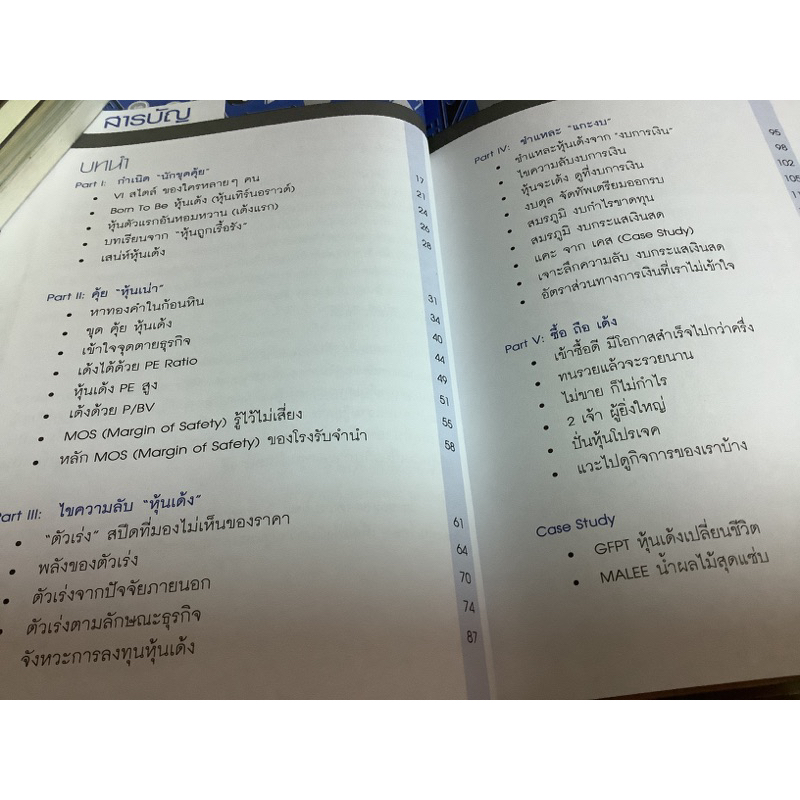 สารบัญ
บทนำ
Part I: กำเนิด "นักขุดคุ้ย"
• VI สไตล์ ของใครหลายๆ คน 17
• Born To Be หุ้นเด้ง (หุ้นเทิร์นอราวด์) 21
• หุ้นตัวแรกอันหอมหวาน (เด้งแรก) 24
• บทเรียนจาก "หุ้นถูกเรื้อรัง" 26
• เสน่ห์หุ้นเด้ง 28
Part II: คุ้ย "หุ้นเน่า"
• หาทองคำในก้อนหิน 31
• ขุด คุ้ย หุ้นเด้ง 34
• เข้าใจจุดตายธุรกิจ 40
• เด้งได้ด้วย PE Ratio 44
• หุ้นเด้ง PE สูง 49
• เด้งด้วย P/BV 51
• MOS (Margin of Safety) รู้ไว้ไม่เสี่ยง 55
• หลัก MOS (Margin of Safety) ของโรงรับจำนำ 58
Part III: ไขความลับ "หุ้นเด้ง"
• "ตัวเร่ง" สปีดที่มองไม่เห็นของราคา 61
• พลังของตัวเร่ง 64
• ตัวเร่งจากปัจจัยภายนอก 70
• ตัวเร่งตามลักษณะธุรกิจ 74
จังหวะการลงทุนหุ้นเด้ง 87
Part IV: ชำแหละ "แกะงบ"
• ชำแหละหุ้นเด้งจาก "งบการเงิน" 95
• ไขความลับงบการเงิน 98
• หุ้นจะเด้ง ดูที่งบการเงิน 102
• งบดุล จัดทัพเตรียมออกรบ 105
• สมรภูมิ งบกำไรขาดทุน
• สมรภูมิ งบกระแสเงินสด
• แคะ จาก เคส (Case Study)
• เจาะลึกความลับ งบกระแสเงินสด
• อัตราส่วนทางการเงินที่เราไม่เข้าใจ
Part V: ซื้อ ถือ เด้ง
• เข้าซื้อดี มีโอกาสสำเร็จไปกว่าครึ่ง
• ทนรวยแล้วจะรวยนาน
• ไม่ขาย ก็ไม่กำไร
• 2 เจ้า ผู้ยิ่งใหญ่
• ปั่นหุ้นโปรเจค
• แวะไปดูกิจการของเราบ้าง
Case Study
• GFPT หุ้นเด้งเปลี่ยนชีวิต
• MALEE น้ำผลไม้สุดแซ่บ